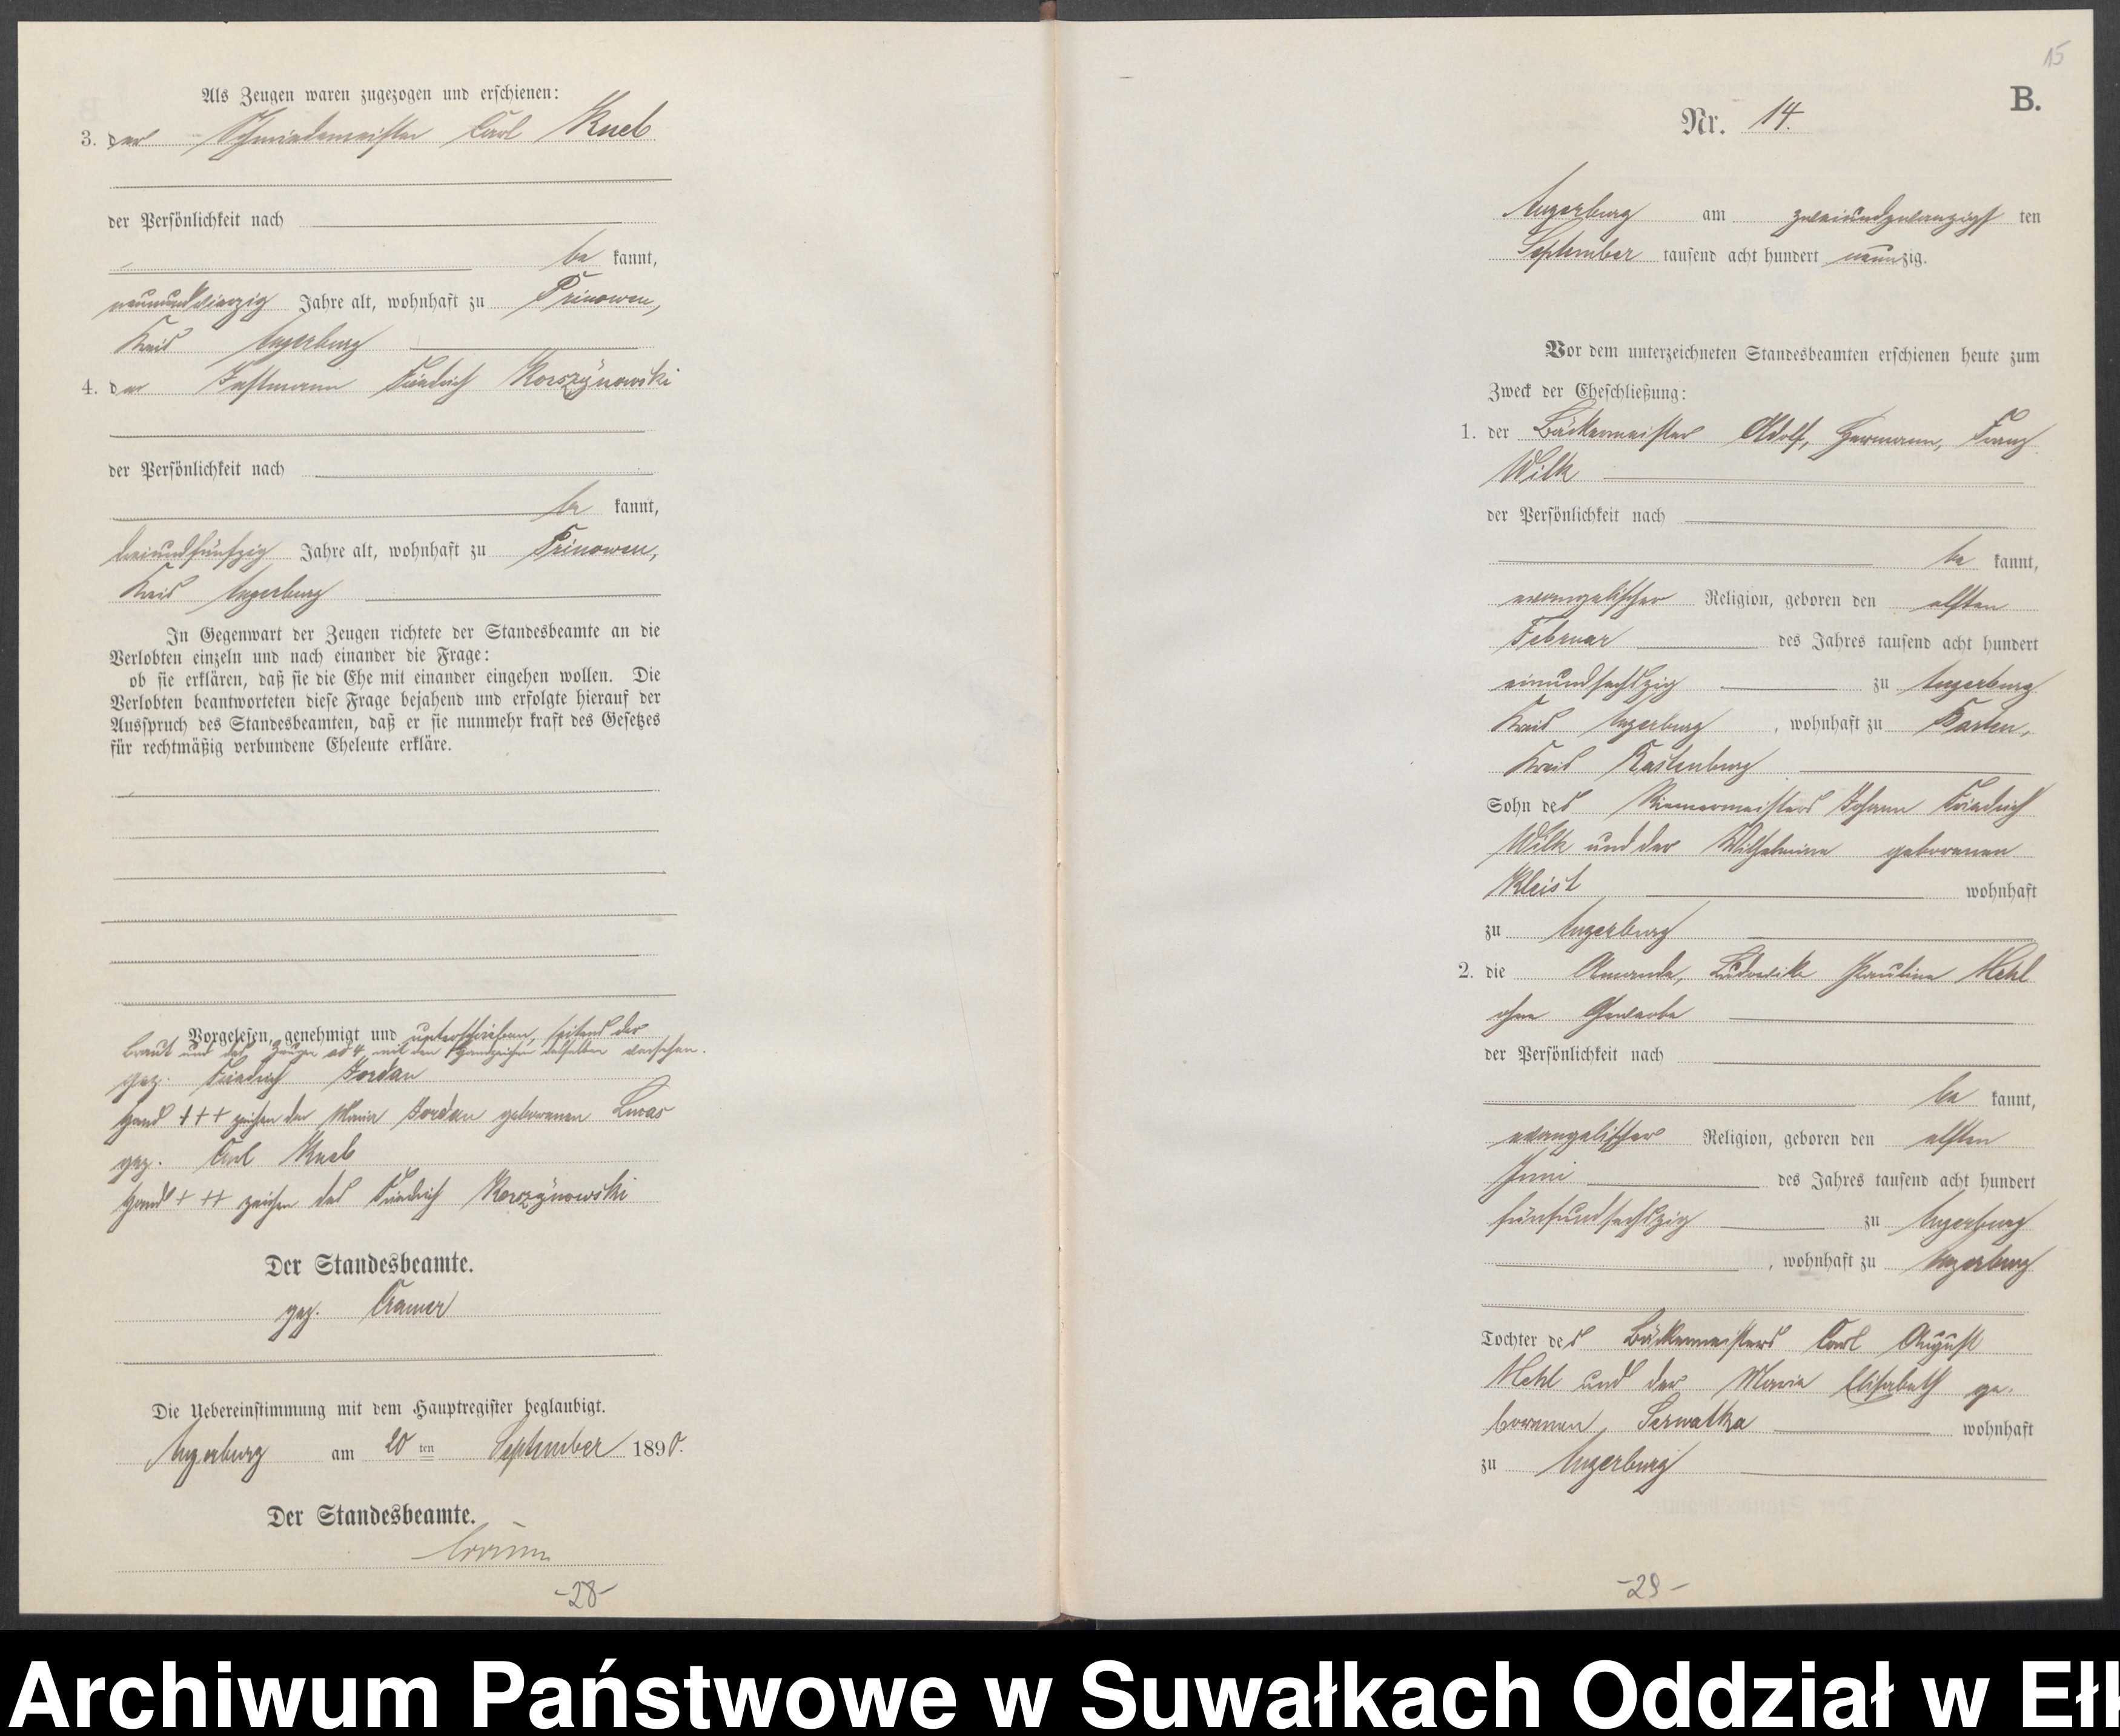 Als Zeugen waren zugezogen und erschienen:
3. der Schmiedemeister Carl Kueb
der Persönlichkeit nach
be kannt,
neunundvierzig Jahre alt, wohnhaft zu Prinowen,
Kreis Angerburg
4. der Instmann Friedrich Korszynowski
der Persönlichkeit nach
be kannt,
dreiundfünfzig Jahre alt, wohnhaft zu Prinowen,
Kreis Angerburg
In Gegenwart der Zeugen richtete der Standesbeamte an die
Verlobten einzeln und nach einander die Frage:
ob sie erklären, daß sie die Ehe mit einander eingehen wollen. Die
Verlobten beantworteten diese Frage bejahend und erfolgte hierauf der
Ausspruch des Standesbeamten, daß er sie nunmehr kraft des Gesetzes
für rechtmäßig verbundene Eheleute erkläre.
Vorgelesen, genehmigt und unterschrieben, seitens der
Braut und des Zeugen ad 4 mit den Handzeichen derselben versehen.
gez. Friedrich Jordan
Hand +++ zeichen der Maria Jordan geborenen Lucas
gez. Carl Kueb
Hand +++ zeichen des Friedrich Korszynowski
Der Standesbeamte.
gez. Cramer
Die Uebereinstimmung mit dem Hauptregister beglaubigt.
Angerburg am 20 ten September 1890.
Der Standesbeamte.
-28-
15
B.
Nr. 14.
Angerburg am zweiundzwanzigst ten
September tausend acht hundert neunzig.
Vor dem unterzeichneten Standesbeamten erschienen heute zum
Zweck der Eheschließung:
1. der Bäckermeister Adolf, Hermann, Franz
Wilk
der Persönlichkeit nach
be kannt,
evangelischer Religion, geboren den elften
Februar des Jahres tausend acht hundert
einundsechszig zu Angerburg
Kreis Angerburg, wohnhaft zu Barten,
Kreis Rastenburg
Sohn des Riemermeisters Johann Friedrich
Wilk und der Wilhelmine geborenen
Kleist wohnhaft
zu Angerburg
2. die Amanda, Ludowike Pauline Mehl
ohne Gewerbe
der Persönlichkeit nach
be kannt,
evangelischer Religion, geboren den elften
Juni des Jahres tausend acht hundert
fünfundsechszig zu Angerburg
, wohnhaft zu Angerburg
Tochter des Bäckermeisters Carl August
Mehl und der Maria Elisabeth ge-
borenen Serwatka wohnhaft
zu Angerburg
-29-
Archiwum Państwowe w Suwałkach Oddział w Ełk